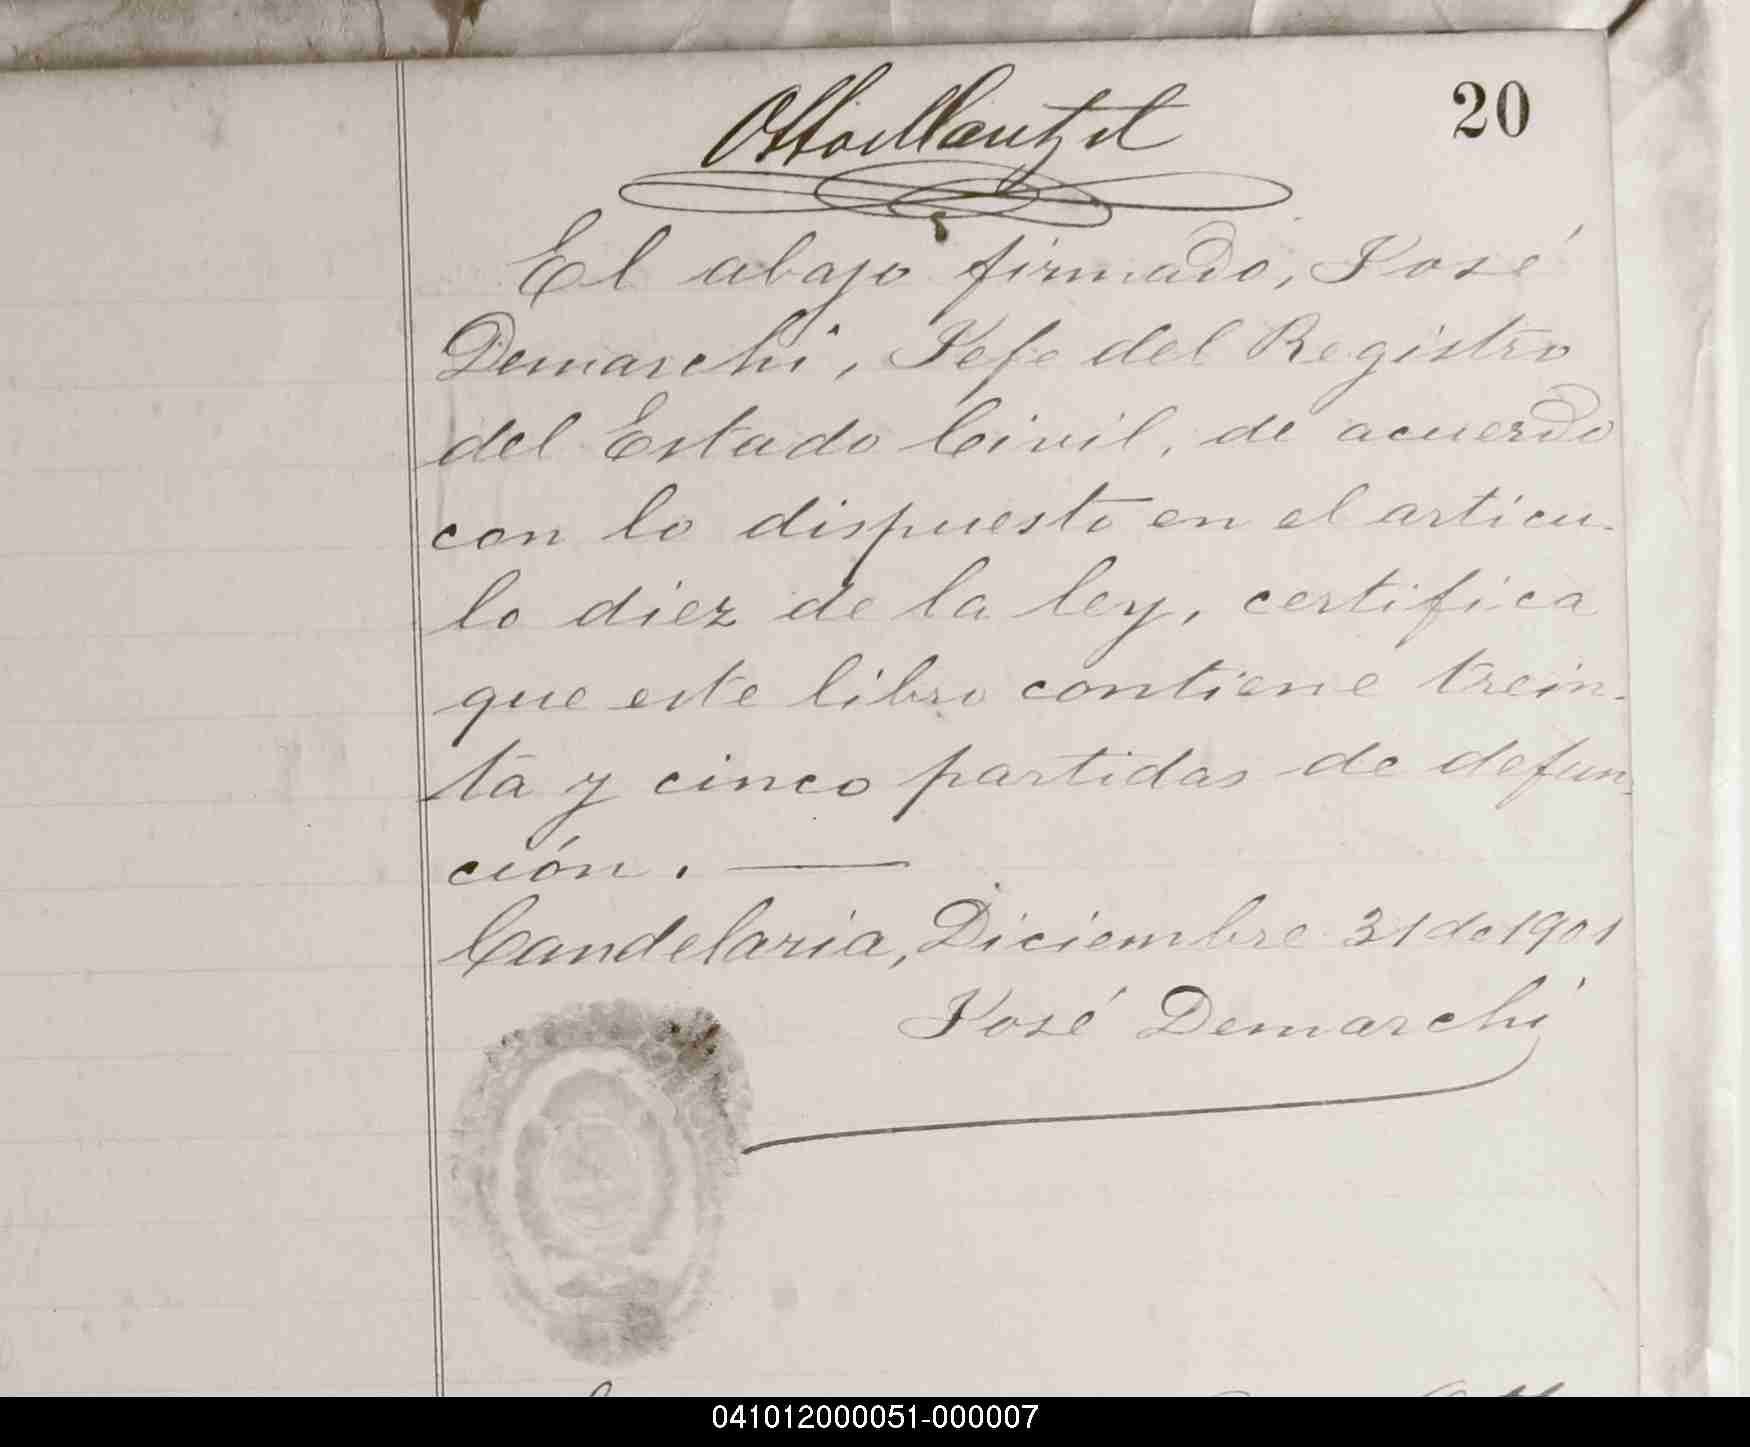 20
Otto Mantzel
El abajo firmado, José
Demarchi, Jefe del Registro
del Estado Civil, de acuerdo
con lo dispuesto en el articu-
lo diez de la ley, certifica
que este libro contiene trein-
ta y cinco partidas de defun-
ción. —
Candelaria, Diciembre 31 de 1901
José Demarchi
041012000051-000007